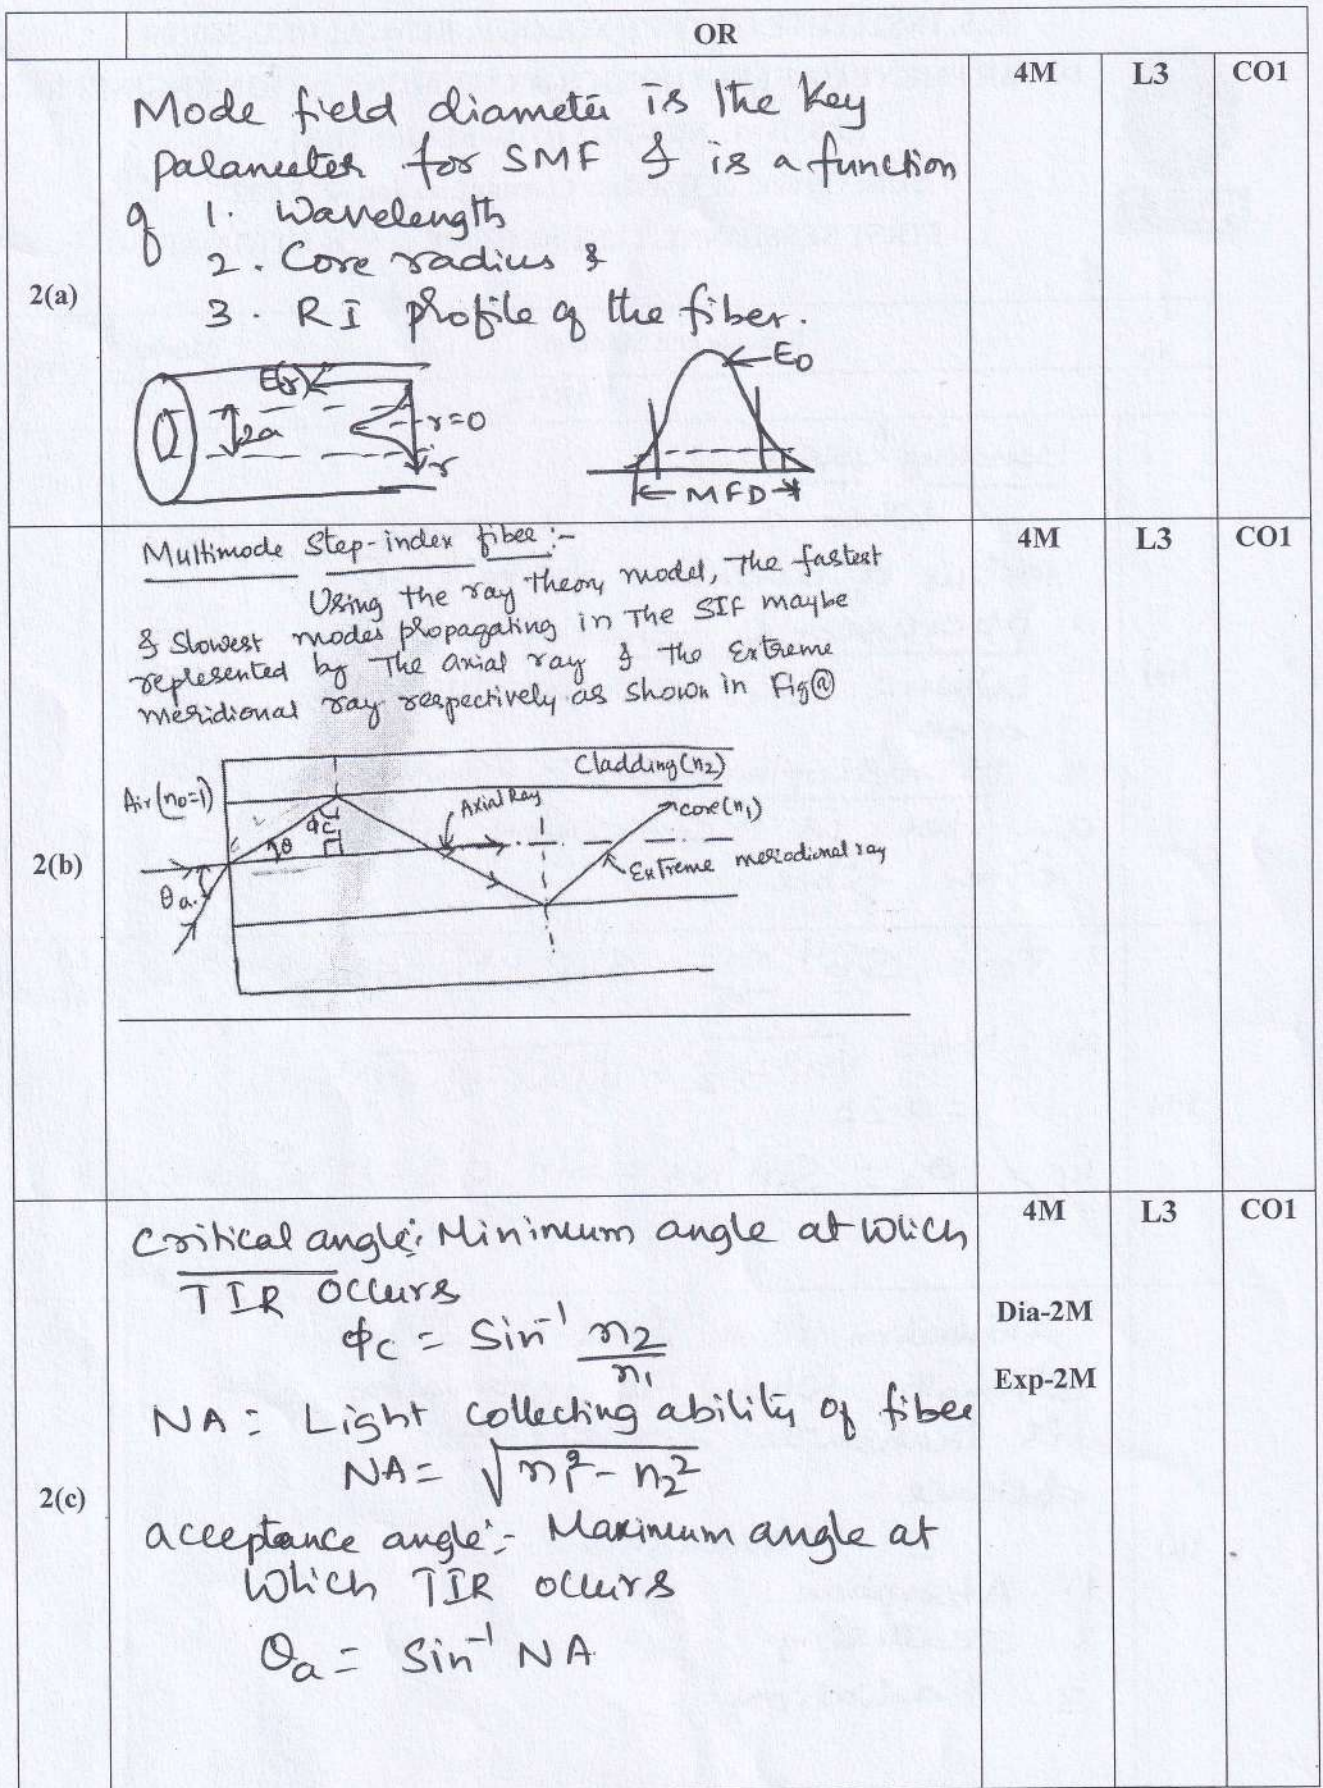 OR
2(a)
4M L3 CO1
Mode field diameter is the key
parameter for SMF & is a function
of 1. Wavelength
2. Core radius &
3. RI profile of the fiber.
E(r)
2a
r=0
r
E0
MFD
2(b)
4M L3 CO1
Multimode Step-index fiber:-
Using the ray theory model, The fastest
& Slowest modes propagating in The SIF maybe
represented by The axial ray & The Extreme
meridional ray respectively as shown in Fig(a)
Cladding(n2)
Air(n0=1)
Axial Ray
core(n1)
ϕc
θ
Extreme meriodional ray
θa
2(c)
4M L3 CO1
Dia-2M
Exp-2M
Critical angle: Minimum angle at which
TIR occurs
ϕc = Sin⁻¹ n2/n1
NA: Light collecting ability of fiber
NA = √n1²-n2²
acceptance angle:- Maximum angle at
which TIR occurs
θa = Sin⁻¹ NA